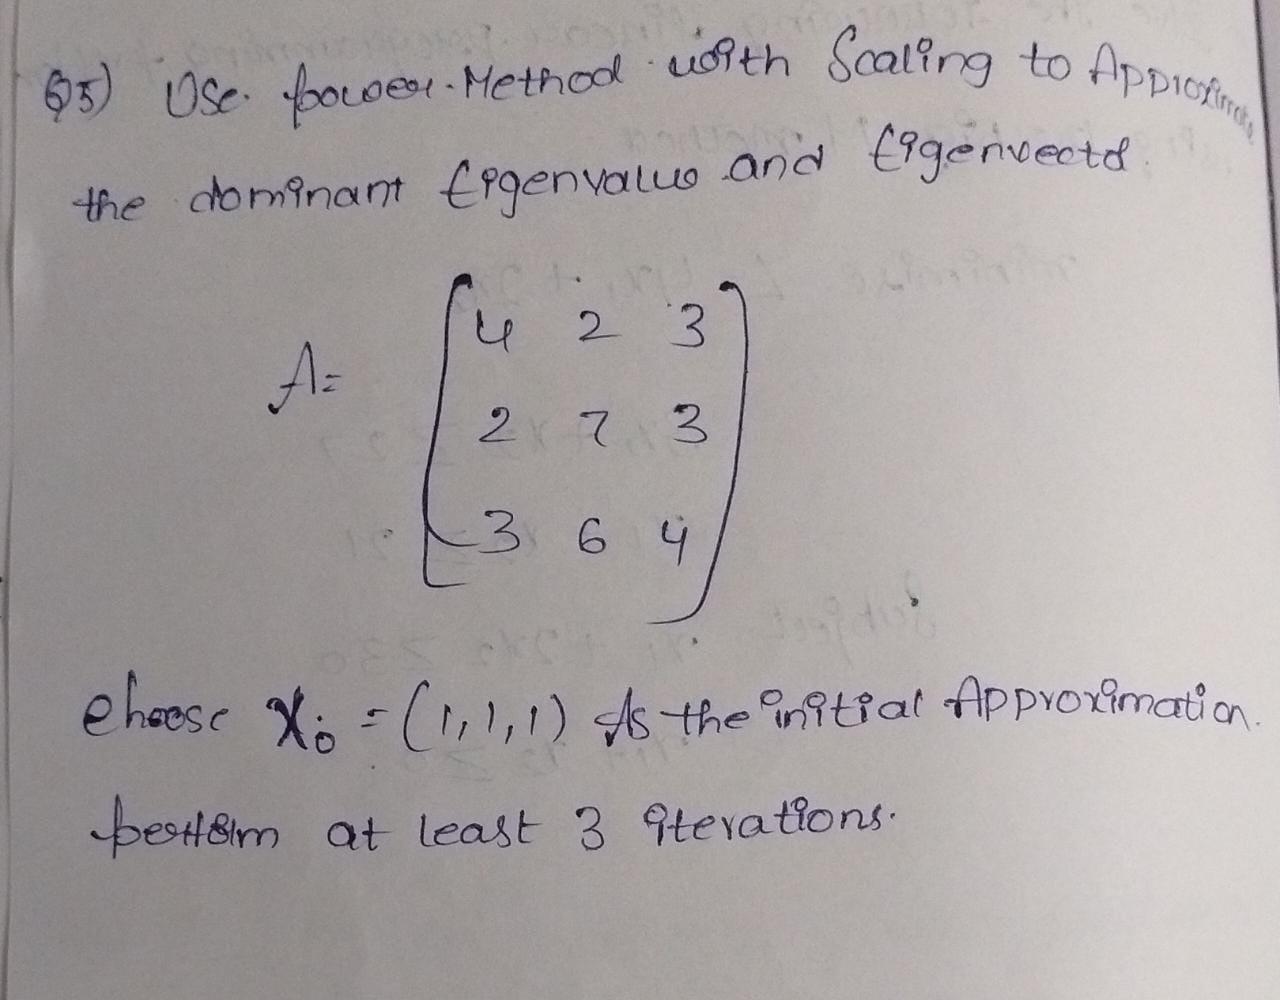 Q5) Use power Method with Scaling to Approximate
the dominant Eigenvalue and Eigenvector.
4 2 3
A= 2 7 3
3 6 4
choose X₀ = (1,1,1) As the initial Approximation.
perform at least 3 iterations.